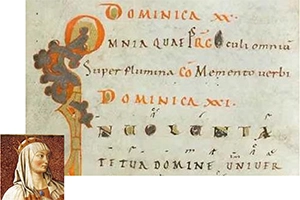 DOMINICA XX.
OMNIA QUAE FAC Oculi omniū
Super flumina CO Memento verbi
DOMINICA XXI.
IN UOLUNTA
TE TUA DOMINE UNIUER